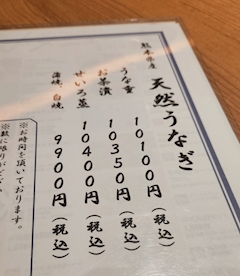 熊本県産
天然うなぎ
うな重 10100円（税込）
お茶漬 10350円（税込）
せいろ蒸 10400円（税込）
蒲焼、白焼 9900円（税込）
※お時間を頂いております。
※数に限りがござ